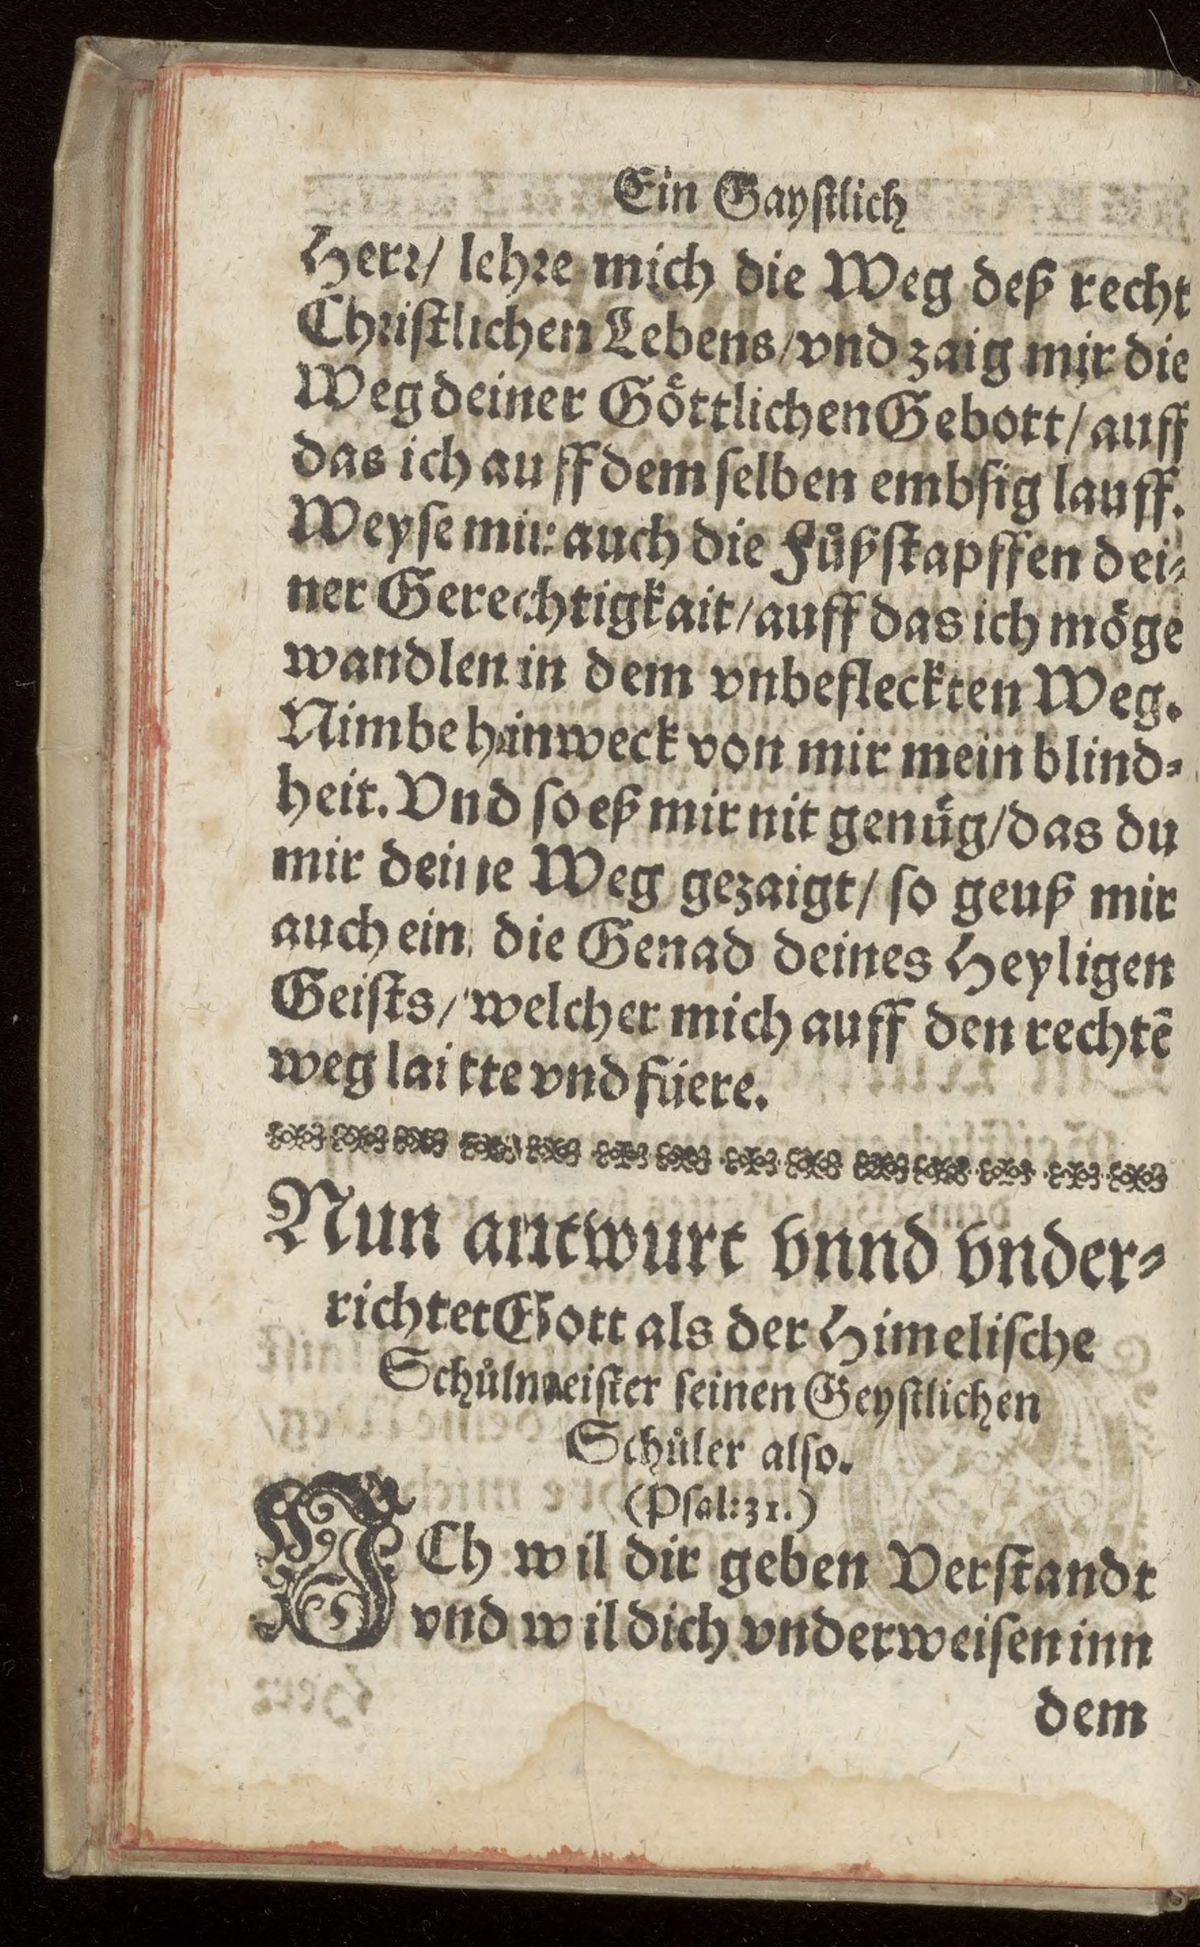 Ein Gayſtlich
Herr/ lehre mich die Weg deß recht
Chriſtlichen Lebens/vnd zaig mir die
Weg deiner Goͤttlichen Gebott/ auff
das ich auff dem ſelben embſig lauff.
Weyſe mir auch die Fuͦßſtapffen dei⸗
ner Gerechtigkait/auff das ich moͤge
wandlen in dem vnbefleckten Weg.
Nimbe hinweck von mir mein blind⸗
heit. Vnd ſo eß mir nit genuͤg/das du
mir deine Weg gezaigt/ ſo geuß mir
auch ein die Genad deines Heyligen
Geiſts/ welcher mich auff den rechtē
weg laitte vnd fuͤere.
Nun antwurt vnnd vnder⸗
richtet Gott als der Himeliſche
Schuͦlmeiſter ſeinen Geyſtlichen
Schuͦler alſo.
(Pſal:31.)
ICh wil dir geben Verſtandt
vnd wil dich vnderweiſen inn
dem